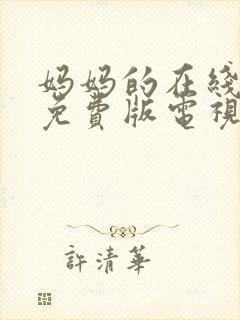 妈妈的在线
免費版電視
許清華